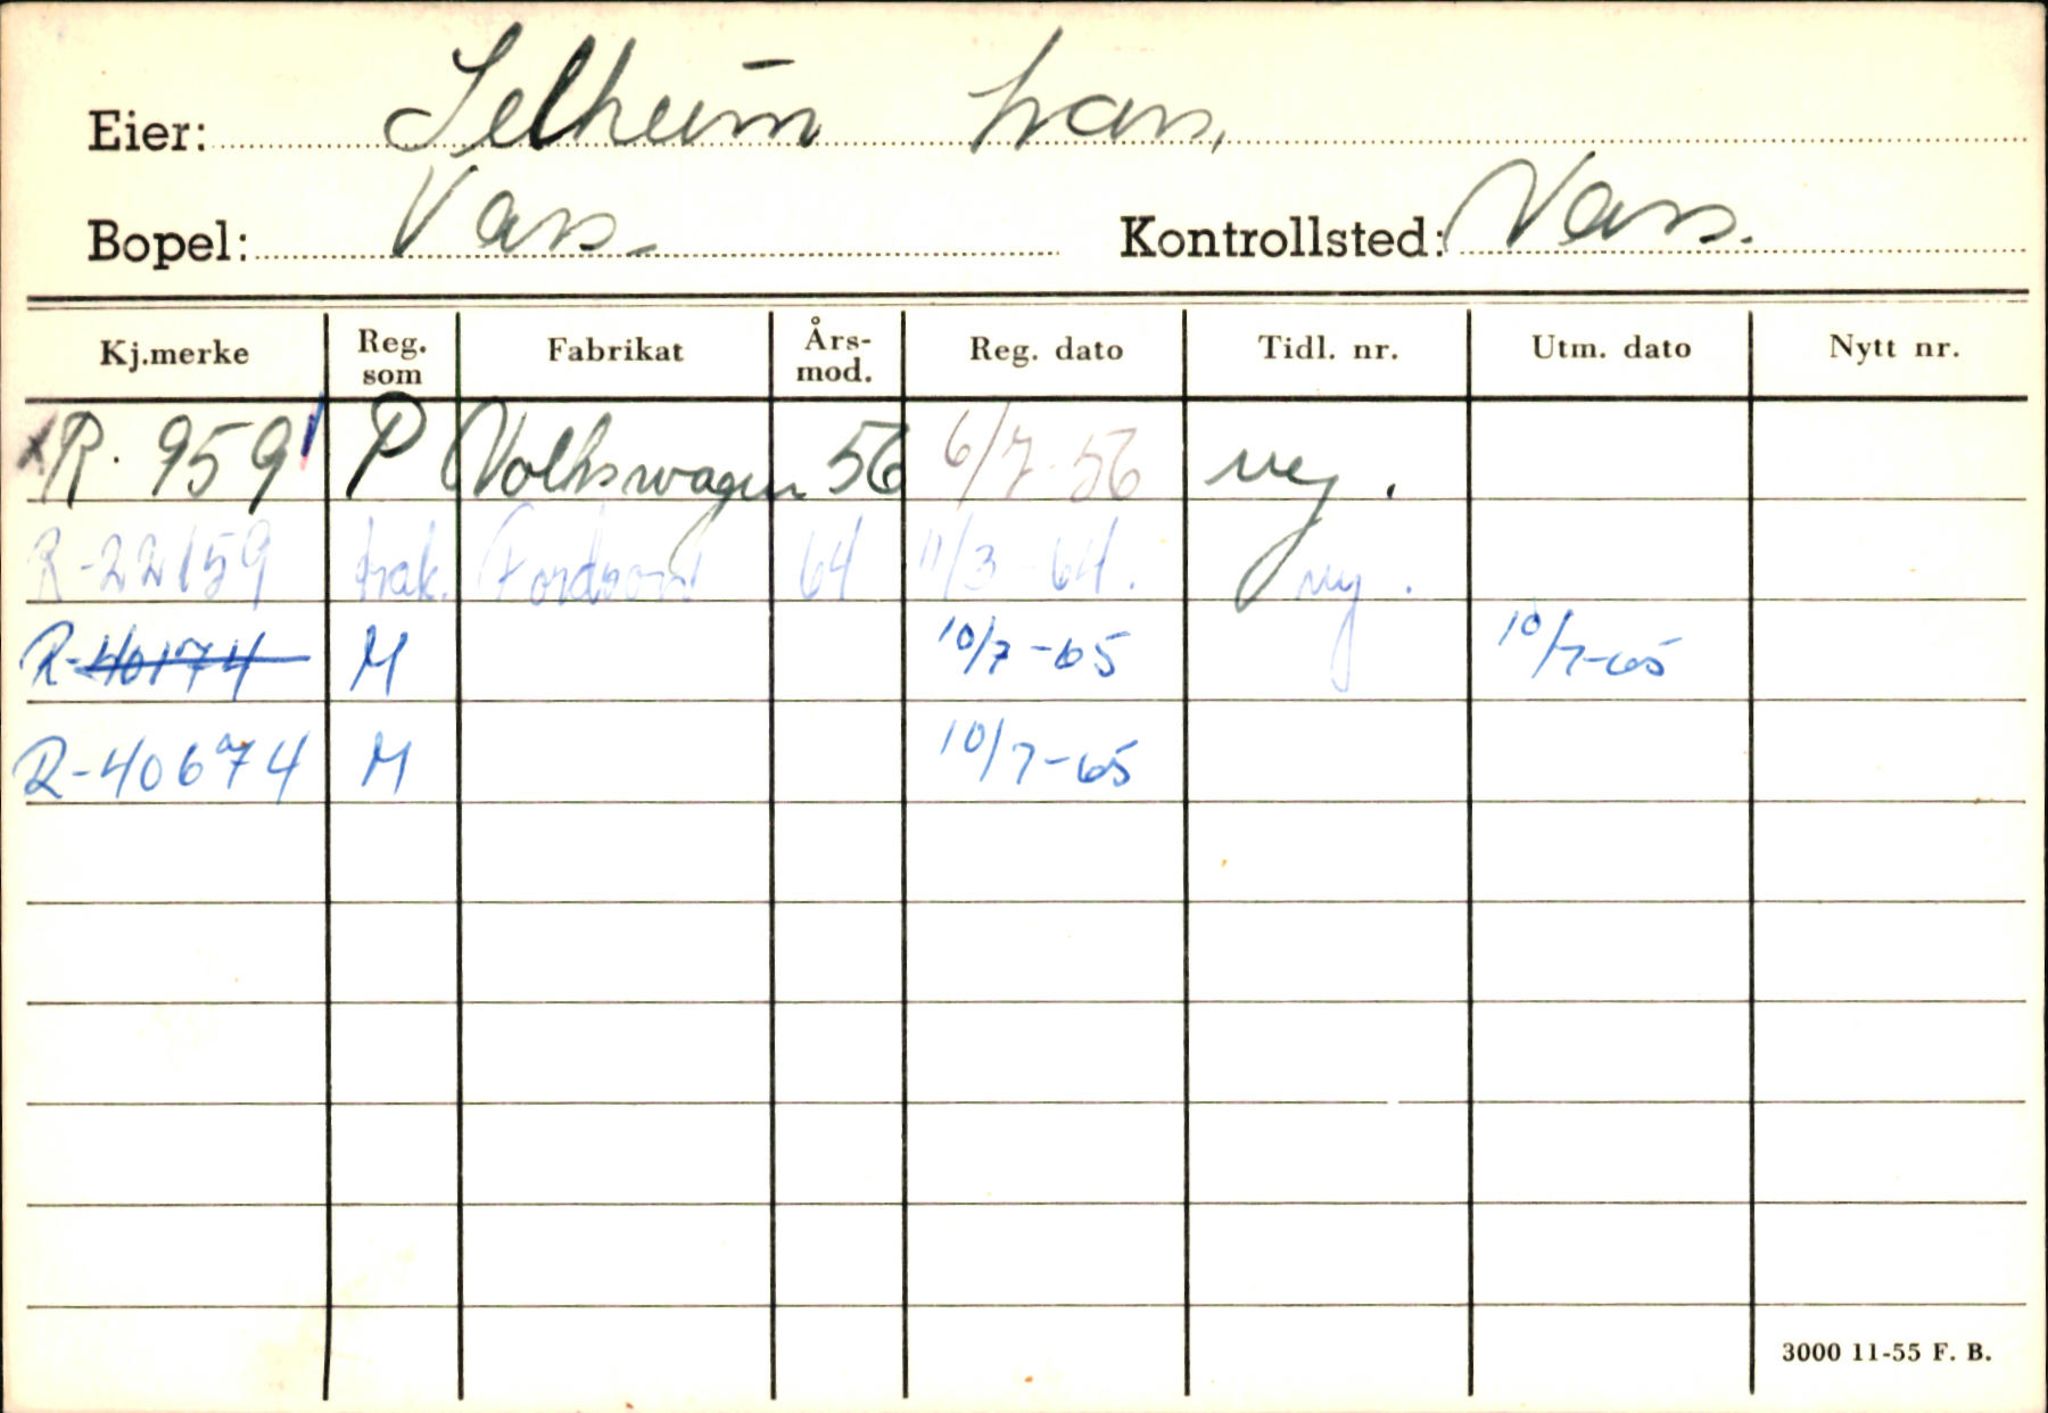 Eier: Selheim Ivar,
Bopel: Voss. Kontrollsted: Voss.
Kj.merke Reg. som Fabrikat Års-mod. Reg. dato Tidl. nr. Utm. dato Nytt nr.
R. 959 P Volkswagen 56 6/7-56 ny.
R-22159 trak. Fordson 64 11/3-64. ny.
R-40174 M 10/7-65 10/7-65
R-40674 M 10/7-65
3000 11-55 F. B.